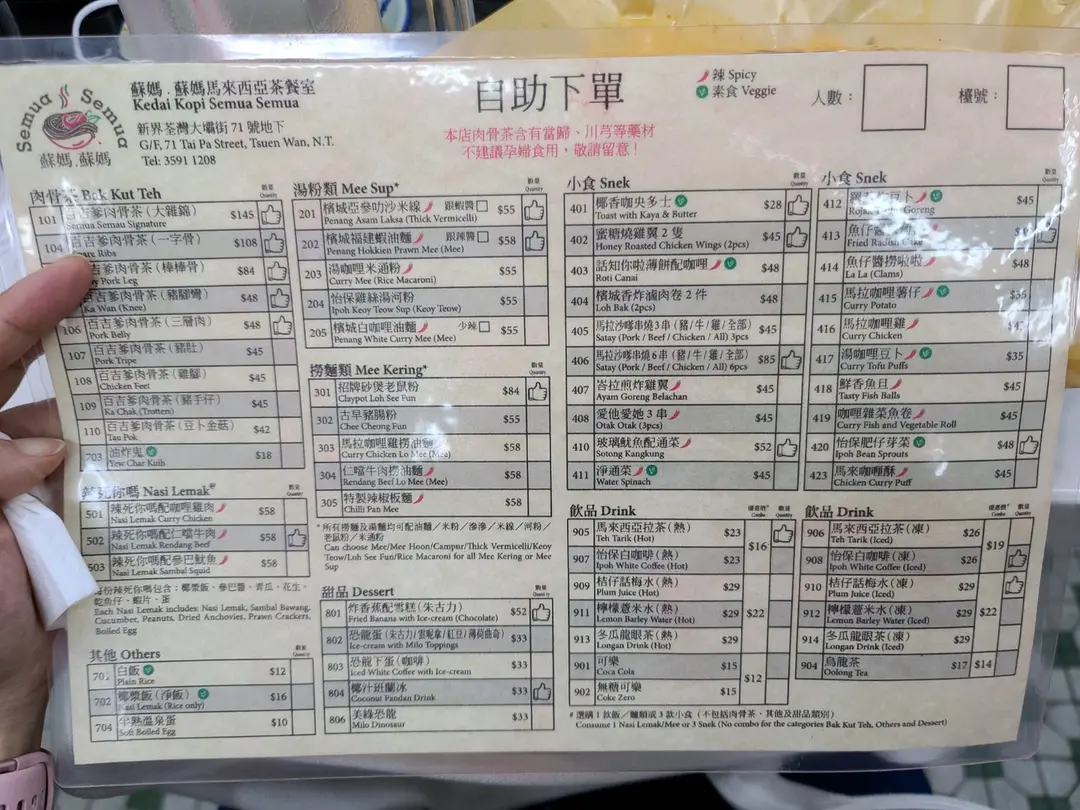 Semua Semua
蘇媽.蘇媽
蘇媽.蘇媽馬來西亞茶餐室
Kedai Kopi Semua Semua
新界荃灣大壩街 71 號地下
G/F, 71 Tai Pa Street, Tsuen Wan, N.T.
Tel: 3591 1208
自助下單
本店肉骨茶含有當歸、川芎等藥材
不建議孕婦食用，敬請留意！
辣 Spicy
素食 Veggie
人數：
檯號：
肉骨茶 Bak Kut Teh
數量 Quantity
101 百吉爹肉骨茶 (大雜錦) $145
Semua Semau Signature
104 百吉爹肉骨茶 (一字骨) $108
Ribs
吉爹肉骨茶 (棒棒骨) $84
Pork Leg
百吉爹肉骨茶 (豬腳彎) $48
Ka Wan (Knee)
106 百吉爹肉骨茶 (三層肉) $48
Pork Belly
107 百吉爹肉骨茶 (豬肚) $45
Pork Tripe
108 百吉爹肉骨茶 (雞腳) $45
Chicken Feet
109 百吉爹肉骨茶 (豬手仔) $45
Ka Chak (Trotters)
110 百吉爹肉骨茶 (豆卜金菇) $42
Tau Pok
703 油炸鬼 $18
Yew Char Kuih
辣死你嗎 Nasi Lemak#
數量 Quantity
501 辣死你嗎配咖喱雞肉 $58
Nasi Lemak Curry Chicken
502 辣死你嗎配仁噹牛肉 $58
Nasi Lemak Rendang Beef
503 辣死你嗎配參巴魷魚 $58
Nasi Lemak Sambal Squid
每份辣死你嗎包含：椰漿飯、參巴醬、青瓜、花生、
乾魚仔、蝦片、蛋
Each Nasi Lemak includes: Nasi Lemak, Sambal Bawang,
Cucumber, Peanuts, Dried Anchovies, Prawn Crackers,
Boiled Egg
其他 Others
數量 Quantity
701 白飯 $12
Plain Rice
702 椰漿飯 (淨飯) $16
Nasi Lemak (Rice only)
704 半熟溫泉蛋 $10
Soft Boiled Egg
湯粉類 Mee Sup*
數量 Quantity
201 檳城亞參叻沙米線 跟蝦醬 $55
Penang Asam Laksa (Thick Vermicelli)
202 檳城福建蝦油麵 跟辣醬 $58
Penang Hokkien Prawn Mee (Mee)
203 湯咖喱米通粉 $55
Curry Mee (Rice Macaroni)
204 怡保雞絲湯河粉 $55
Ipoh Keoy Teow Sup (Keoy Teow)
205 檳城白咖喱油麵 少辣 $55
Penang White Curry Mee (Mee)
撈麵類 Mee Kering*
數量 Quantity
301 招牌砂煲老鼠粉 $84
Claypot Loh See Fun
302 古早豬腸粉 $55
Chee Cheong Fun
303 馬拉咖喱雞撈油麵 $58
Curry Chicken Lo Mee (Mee)
304 仁噹牛肉撈油麵 $58
Rendang Beef Lo Mee (Mee)
305 特製辣椒板麵 $58
Chilli Pan Mee
*所有撈麵及湯麵均可配油麵／米粉／滲滲／米線／河粉／
老鼠粉／米通粉
Can choose Mee/Mee Hoon/Campur/Thick Vermicelli/Keoy
Teow/Loh See Fun/Rice Macaroni for all Mee Kering or Mee
Sup
甜品 Dessert
數量 Quantity
801 炸香蕉配雪糕 (朱古力) $52
Fried Banana with Ice-cream (Chocolate)
802 恐龍蛋 (朱古力/雲呢拿/紅豆/薄荷曲奇) $33
Ice-cream with Milo Toppings
803 恐龍下蛋 (咖啡) $33
Iced White Coffee with Ice-cream
804 椰汁班蘭冰 $33
Coconut Pandan Drink
806 美綠恐龍 $33
Milo Dinosaur
小食 Snek
數量 Quantity
401 椰香咖央多士 $28
Toast with Kaya & Butter
402 蜜糖燒雞翼 2 隻 $45
Honey Roasted Chicken Wings (2pcs)
403 話知你啦薄餅配咖喱 $48
Roti Canai
404 檳城香炸滷肉卷 2 件 $48
Loh Bak (2pcs)
405 馬拉沙嗲串燒3串 (豬/牛/雞/全部) $45
Satay (Pork / Beef / Chicken / All) 3pcs
406 馬拉沙嗲串燒6串 (豬/牛/雞/全部) $85
Satay (Pork / Beef / Chicken / All) 6pcs
407 峇拉煎炸雞翼 $45
Ayam Goreng Belachan
408 愛他愛她 3 串 $45
Otak Otak (3pcs)
410 玻璃魷魚配通菜 $52
Sotong Kangkung
411 淨通菜 $45
Water Spinach
小食 Snek
數量 Quantity
412 豆卜 $45
Goreng
413 魚仔
Fried Radish Cake
414 魚仔醬撈啦啦 $48
La La (Clams)
415 馬拉咖喱薯仔
Curry Potato
416 馬拉咖喱雞
Curry Chicken
417 湯咖喱豆卜 $35
Curry Tofu Puffs
418 鮮香魚旦 $45
Tasty Fish Balls
419 咖喱雜菜魚卷 $45
Curry Fish and Vegetable Roll
420 怡保肥仔芽菜 $48
Ipoh Bean Sprouts
423 馬來咖喱酥 $45
Chicken Curry Puff
飲品 Drink
優惠價# Combo
數量 Quantity
905 馬來西亞拉茶 (熱) $23
Teh Tarik (Hot)
$16
907 怡保白咖啡 (熱) $23
Ipoh White Coffee (Hot)
909 桔仔話梅水 (熱) $29
Plum Juice (Hot)
911 檸檬薏米水 (熱) $29 $22
Lemon Barley Water (Hot)
913 冬瓜龍眼茶 (熱) $29
Longan Drink (Hot)
901 可樂 $15
Coca Cola
$12
902 無糖可樂 $15
Coke Zero
飲品 Drink
優惠價# Combo
數量 Quantity
906 馬來西亞拉茶 (凍) $26
Teh Tarik (Iced)
$19
908 怡保白咖啡 (凍) $26
Ipoh White Coffee (Iced)
910 桔仔話梅水 (凍) $29
Plum Juice (Iced)
912 檸檬薏米水 (凍) $29 $22
Lemon Barley Water (Iced)
914 冬瓜龍眼茶 (凍) $29
Longan Drink (Iced)
904 烏龍茶 $17 $14
Oolong Tea
# 選購 1 款飯／麵類或 3 款小食 (不包括肉骨茶、其他及甜品類別)
Consume 1 Nasi Lemak/Mee or 3 Snek (No combo for the categories Bak Kut Teh, Others and Dessert)